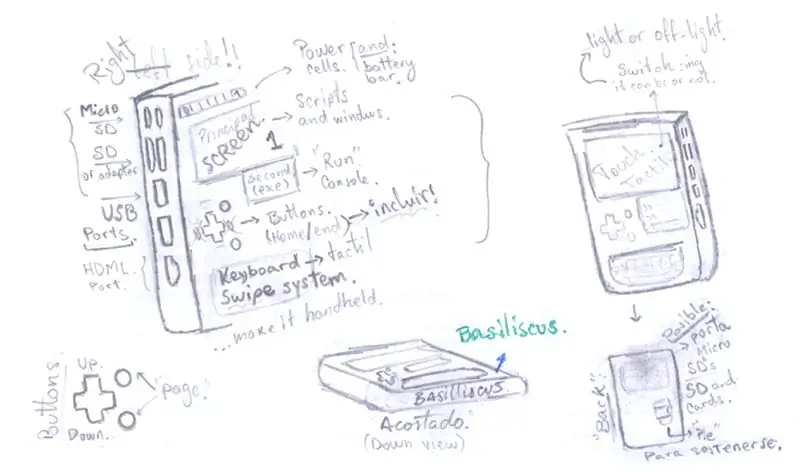 Right Left side!!
Power cells. and: battery bar.
Micro SD
SD or adapter
USB Ports.
HDML Port.
Principal
SCREEN 1
scripts and windws.
second (exe)
"Run" Console.
Buttons. (Home/end)
incluir!
Keyboard
Swipe system.
tactil
...make it handheld.
light or off-light.
Switch:ing
it can be or not.
Touch
Tactil
Buttons:
Up.
Down.
"page."
Basiliscus.
BASILISCUS
"Acostado."
(Down view)
"Back"
Posible:
porta
Micro
SD's
SD and
cards.
"Pie"
Para sostenerse.